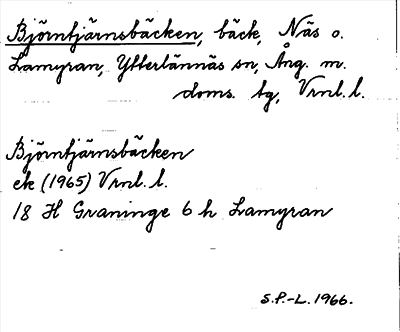 Björntjärnsbäcken, bäck, Näs o.
Lamyran, Ytterlännäs sn, Ång. m.
doms. tg, Vrnl. l.
Björntjärnsbäcken
ek (1965) Vrnl. l.
18 H Graninge 6 h Lamyran
S.P.-L. 1966.